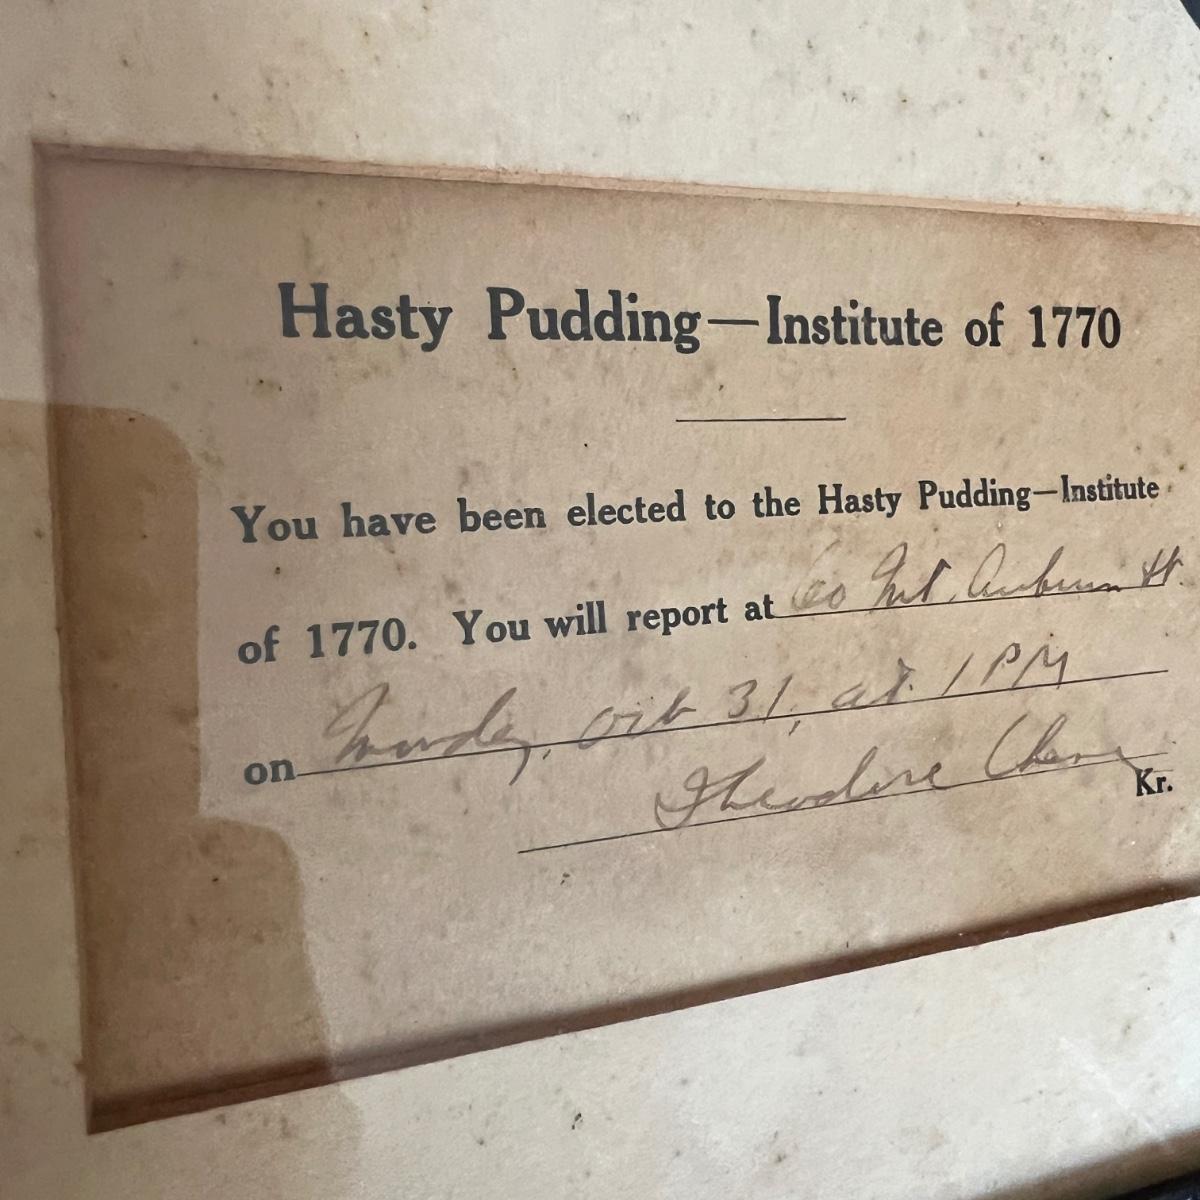 Hasty Pudding—Institute of 1770
You have been elected to the Hasty Pudding—Institute
of 1770. You will report at 60 Mt. Auburn St.
on Monday, Oct 31, at 1 PM
Theodore
Kr.